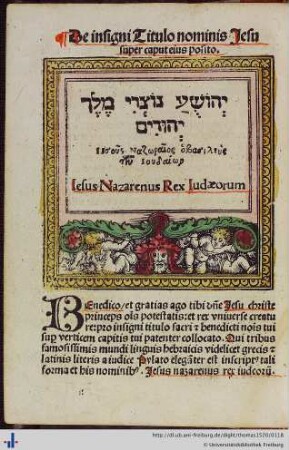 De insigni Titulo nominis Jesu
super caput eius posito.
יְהוֹשֻׁעַ נוֹצְרִי מֶלֶךְ
יְהוּדִים
Ιησους ναζωραῖος ὁ βασιλευς
τῶν Ιουδαίων
Iesus Nazarenus Rex Iudæorum
BEnedico/ et gratias ago tibi dn̄e Jesu christe
princeps ois potestatis: et rex vniuerse creatu
re: pro insigni titulo sacri ⁊ benedicti nois tui
sup verticem capitis tui patenter collocato. Qui tribus
famosissimis mundi linguis hebraicis videlicet grecis ⁊
latinis literis a iudice Pylato elegāter est inscript⁹ tali
forma et his nominib⁹. Jesus nazarenus rex iudeorū.
http://dl.ub.uni-freiburg.de/diglit/thomas1520/0118
© Universitätsbibliothek Freiburg